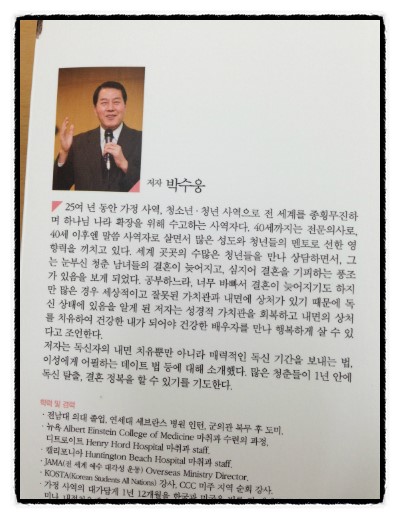 저자 박수웅
25여 년 동안 가정 사역, 청소년·청년 사역으로 전 세계를 종횡무진하
며 하나님 나라 확장을 위해 수고하는 사역자다. 40세까지는 전문의사로,
40세 이후엔 말씀 사역자로 살면서 많은 성도와 청년들의 멘토로 선한 영
향력을 끼치고 있다. 세계 곳곳의 수많은 청년들을 만나 상담하면서, 그
는 눈부신 청춘 남녀들의 결혼이 늦어지고, 심지어 결혼을 기피하는 풍조
가 있음을 보게 되었다. 공부하느라, 너무 바빠서 결혼이 늦어지기도 하지
만 많은 경우 세상적이고 잘못된 가치관과 내면에 상처가 있기 때문에 독
신 상태에 있음을 알게 된 저자는 성경적 가치관을 회복하고 내면의 상처
를 치유하여 건강한 내가 되어야 건강한 배우자를 만나 행복하게 살 수 있
다고 조언한다.
저자는 독신자의 내면 치유뿐만 아니라 매력적인 독신 기간을 보내는 법,
이성에게 어필하는 데이트 법 등에 대해 소개했다. 많은 청춘들이 1년 안에
독신 탈출, 결혼 정복을 할 수 있기를 기도한다.
학력 및 경력
· 전남대 의대 졸업, 연세대 세브란스 병원 인턴, 군의관 복무 후 도미.
· 뉴욕 Albert Einstein College of Medicine 마취과 수련의 과정.
디트로이트 Henry Hord Hospital 마취과 staff.
· 캘리포니아 Huntington Beach Hospital 마취과 staff.
· JAMA(전 세계 예수 대각성 운동) Overseas Ministry Director.
· KOSTA(Korean Students All Nations) 강사, CCC 미주 지역 순회 강사.
· 가정 사역의 대가답게 1년 12개월을 한국과 미국을